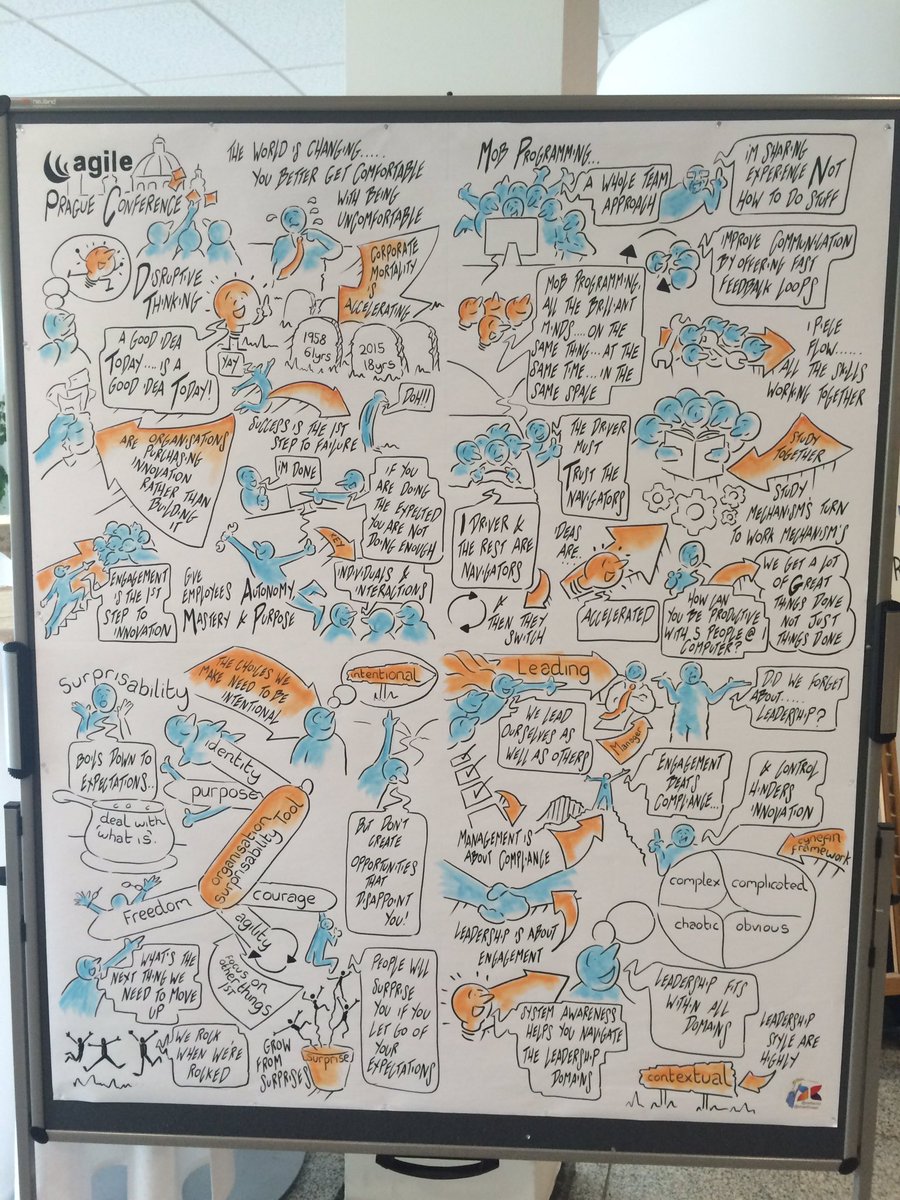 neuland
agile
PRAGUE CONFERENCE
THE WORLD IS CHANGING.....
YOU BETTER GET COMFORTABLE
WITH BEING
UNCOMFORTABLE
DISRUPTIVE
THINKING
CORPORATE
MORTALITY
IS
ACCELERATING
1958
61yrs
2015
18yrs
A GOOD IDEA
TODAY.... IS A
GOOD IDEA TODAY!
YAY
DOH!!
SUCCESS IS THE 1ST
STEP TO FAILURE
ARE ORGANISATIONS
PURCHASING
INNOVATION
RATHER THAN
BUILDING
IT
I'M DONE
IF YOU
ARE DOING
THE EXPECTED
YOU ARE NOT
DOING ENOUGH
ENGAGEMENT
IS THE 1ST
STEP TO
INNOVATION
GIVE
EMPLOYEES AUTONOMY
MASTERY & PURPOSE
KEY
INDIVIDUALS &
INTERACTIONS
MOB PROGRAMMING...
A WHOLE TEAM
APPROACH
I'M SHARING
EXPERIENCE NOT
HOW TO DO STUFF
IMPROVE COMMUNICATION
BY OFFERING FAST
FEEDBACK LOOPS
MOB PROGRAMMING.
ALL THE BRILLIANT
MINDS.... ON THE
SAME THING... AT THE
SAME TIME.... IN THE
SAME SPACE
1 PIECE
FLOW......
ALL THE SKILLS
WORKING TOGETHER
THE DRIVER
MUST
TRUST THE
NAVIGATORS
STUDY
TOGETHER
STUDY
MECHANISM'S TURN
TO WORK MECHANISM'S
1 DRIVER &
THE REST ARE
NAVIGATORS
& THEN THEY
SWITCH
IDEAS
ARE..
ACCELERATED
HOW CAN
YOU BE PRODUCTIVE
WITH 5 PEOPLE @ 1
COMPUTER?
WE GET A LOT
OF GREAT
THINGS DONE
NOT JUST
THINGS DONE
Surprisability
THE CHOICES WE
MAKE NEED TO BE
INTENTIONAL
intentional
BOILS DOWN TO
EXPECTATIONS..
identity
purpose
deal with
'what is'.
organisation
Surprisability Tool
Freedom
courage
agility
BUT DON'T
CREATE
OPPORTUNITIES
THAT
DISAPPOINT
YOU!
WHAT'S THE
NEXT THING WE
NEED TO MOVE
UP
Focus on
other things
1ST
WE ROCK
WHEN WE'RE
ROCKED
GROW
FROM
SURPRISES
Surprise
PEOPLE WILL
SURPRISE
YOU IF YOU
LET GO OF
YOUR
EXPECTATIONS
Leading
WE LEAD
OURSELVES AS
WELL AS OTHERS
Manager
DID WE FORGET
ABOUT......
LEADERSHIP?
ENGAGEMENT
BEATS
COMPLIANCE...
& CONTROL
HINDERS
INNOVATION
MANAGEMENT IS
ABOUT COMPLIANCE
cynefin
framework
complex
complicated
chaotic
obvious
LEADERSHIP IS ABOUT
ENGAGEMENT
SYSTEM AWARENESS
HELPS YOU NAVIGATE
THE LEADERSHIP
DOMAINS
LEADERSHIP FITS
WITHIN ALL
DOMAINS
LEADERSHIP
STYLE ARE
HIGHLY
contextual